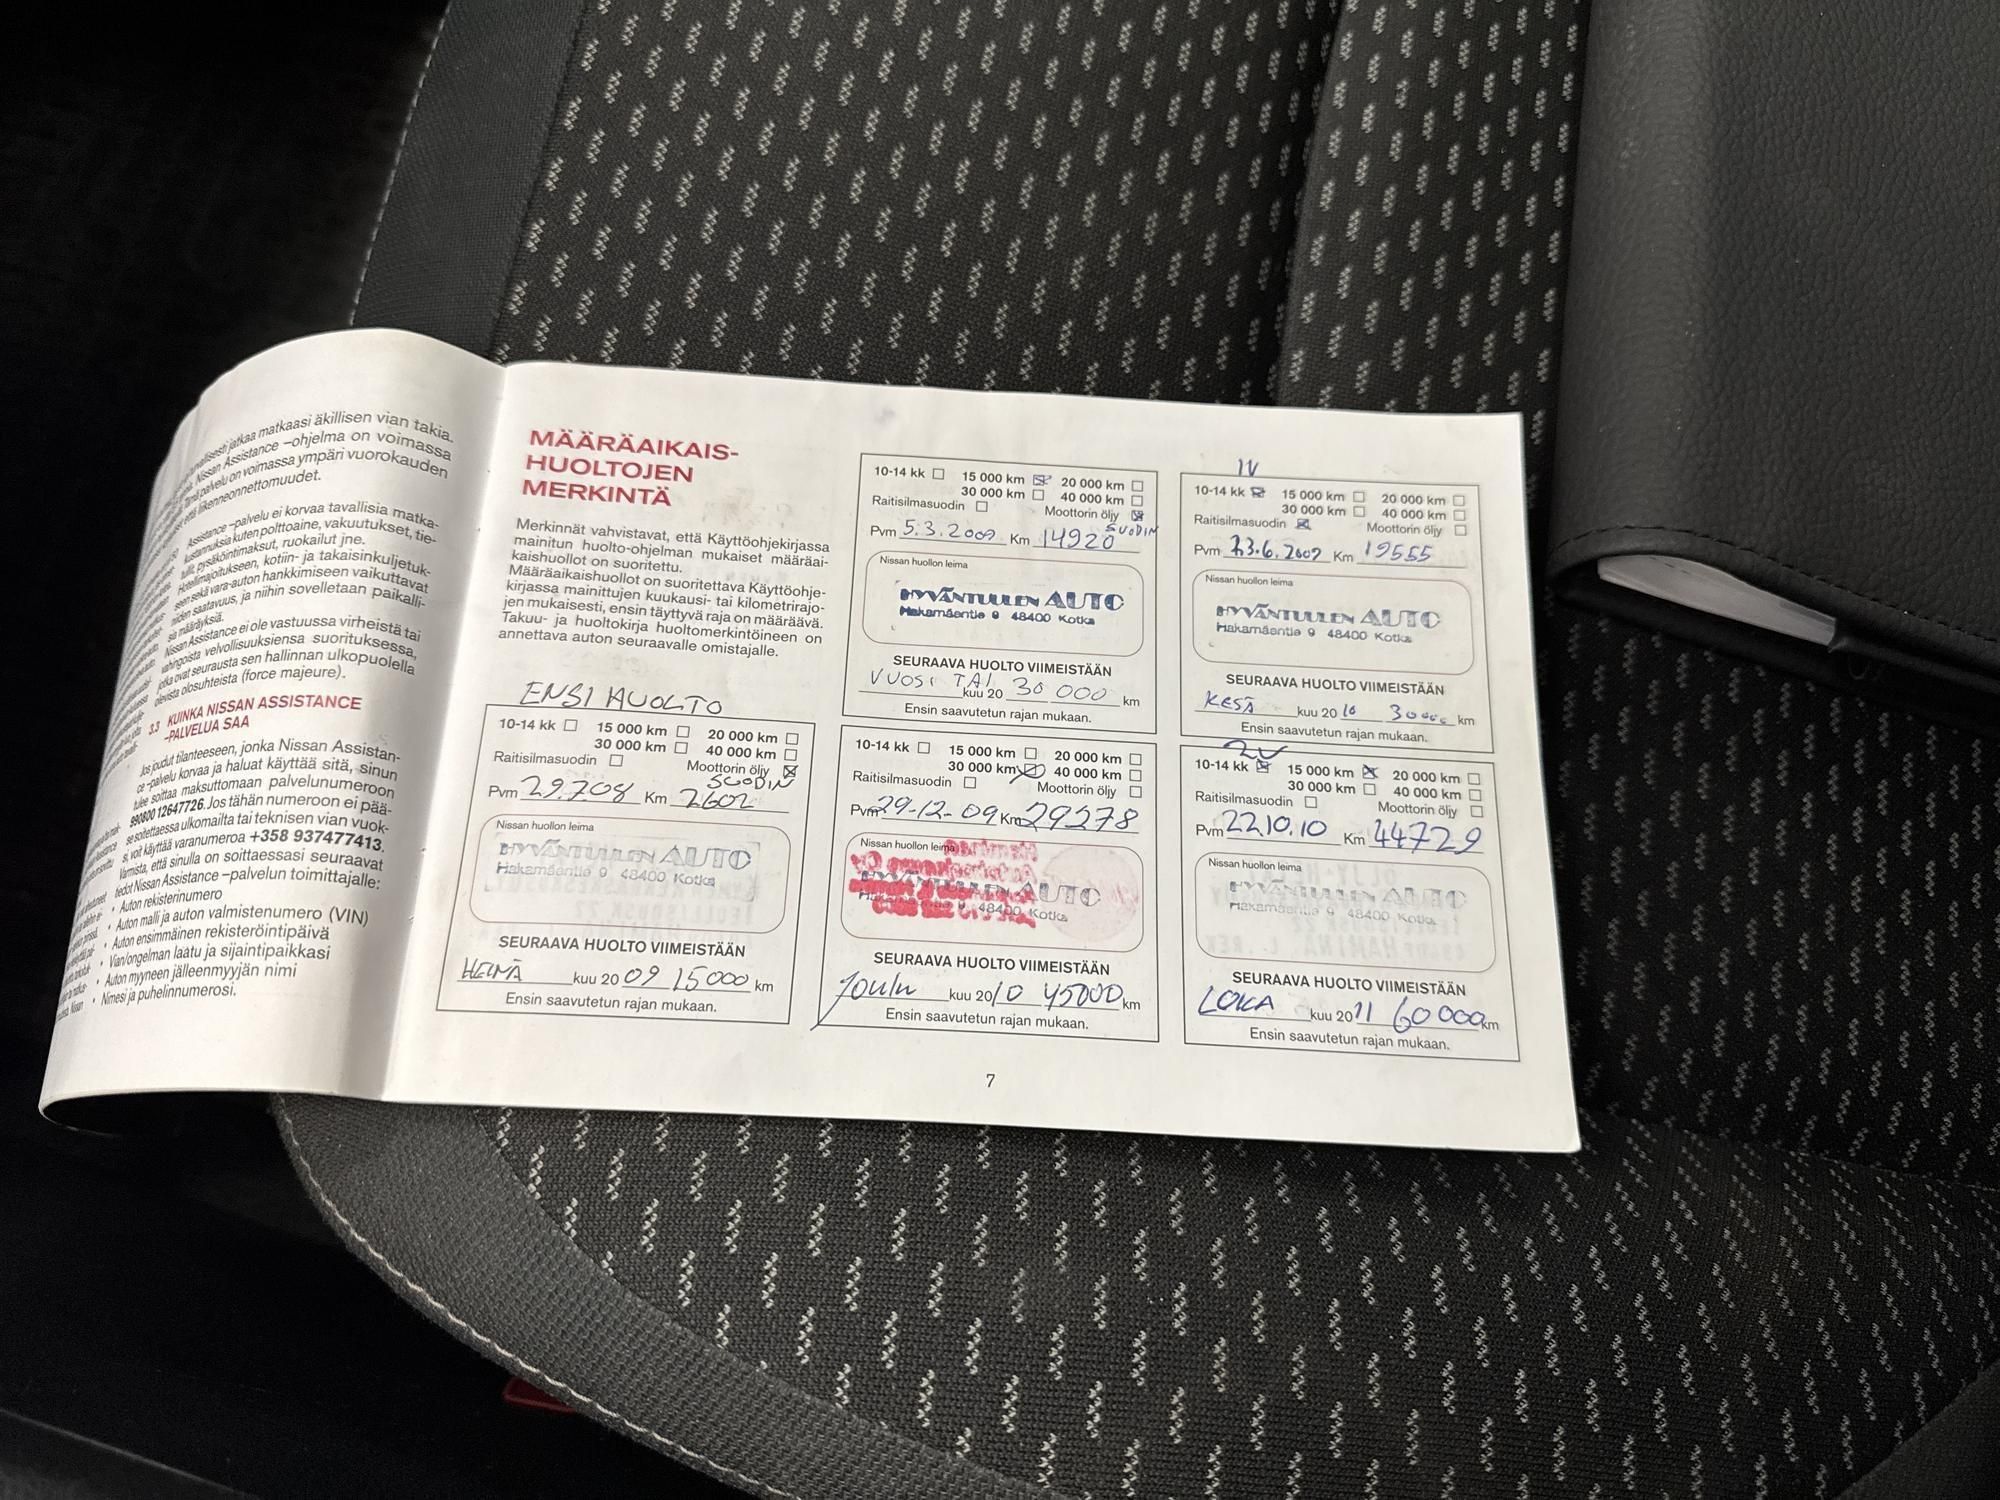 jatkaa matkaasi äkillisen vian takia.
Nissan Assistance –ohjelma on voimassa
palvelu on voimassa ympäri vuorokauden
että liikenneonnettomuudet.
Assistance –palvelu ei korvaa tavallisia matka-
kustannuksia kuten polttoaine, vakuutukset, tie-
tullit, pysäköintimaksut, ruokailut jne.
Hotellimajoitukseen, kotiin- ja takaisinkuljetuk-
seen sekä vara-auton hankkimiseen vaikuttavat
niiden saatavuus, ja niihin sovelletaan paikalli-
sia määräyksiä.
Nissan Assistance ei ole vastuussa virheistä tai
vahingoista velvollisuuksiensa suorituksessa,
jotka ovat seurausta sen hallinnan ulkopuolella
olevista olosuhteista (force majeure).
3.3 KUINKA NISSAN ASSISTANCE
-PALVELUA SAA
Jos joudut tilanteeseen, jonka Nissan Assistan-
ce –palvelu korvaa ja haluat käyttää sitä, sinun
tulee soittaa maksuttomaan palvelunumeroon
990800 12647726. Jos tähän numeroon ei pää-
se soitettaessa ulkomailta tai teknisen vian vuok-
si, voit käyttää varanumeroa +358 937477413.
Varmista, että sinulla on soittaessasi seuraavat
tiedot Nissan Assistance –palvelun toimittajalle:
• Auton rekisterinumero
• Auton malli ja auton valmistenumero (VIN)
• Auton ensimmäinen rekisteröintipäivä
• Vian/ongelman laatu ja sijaintipaikkasi
• Auton myyneen jälleenmyyjän nimi
• Nimesi ja puhelinnumerosi.
MÄÄRÄAIKAIS-
HUOLTOJEN
MERKINTÄ
Merkinnät vahvistavat, että Käyttöohjekirjassa
mainitun huolto-ohjelman mukaiset määräai-
kaishuollot on suoritettu.
Määräaikaishuollot on suoritettava Käyttöohje-
kirjassa mainittujen kuukausi- tai kilometrirajo-
jen mukaisesti, ensin täyttyvä raja on määräävä.
Takuu- ja huoltokirja huoltomerkintöineen on
annettava auton seuraavalle omistajalle.
ENSI HUOLTO
10-14 kk 15 000 km 20 000 km
30 000 km 40 000 km
Raitisilmasuodin Moottorin öljy
SUODIN
Pvm 29.7.08 Km 2602
Nissan huollon leima
HYVÄNTUULEN AUTO
Hakamäentie 9 48400 Kotka
SEURAAVA HUOLTO VIIMEISTÄÄN
HELMÄ kuu 20 09 15000 km
Ensin saavutetun rajan mukaan.
10-14 kk 15 000 km 20 000 km
30 000 km 40 000 km
Raitisilmasuodin Moottorin öljy
SUODIN
Pvm 5.3.2009 Km 14920
Nissan huollon leima
HYVÄNTUULEN AUTO
Hakamäentie 9 48400 Kotka
SEURAAVA HUOLTO VIIMEISTÄÄN
VUOSI TAI kuu 20 30 000 km
Ensin saavutetun rajan mukaan.
10-14 kk 15 000 km 20 000 km
30 000 km 40 000 km
Raitisilmasuodin Moottorin öljy
Pvm 29-12-09 Km 29278
Nissan huollon leima
HYVÄNTUULEN AUTO
Hakamäentie 9 48400 Kotka
SEURAAVA HUOLTO VIIMEISTÄÄN
Joulu kuu 20 10 45000 km
Ensin saavutetun rajan mukaan.
1V
10-14 kk 15 000 km 20 000 km
30 000 km 40 000 km
Raitisilmasuodin Moottorin öljy
Pvm 23.6.2009 Km 19555
Nissan huollon leima
HYVÄNTUULEN AUTO
Hakamäentie 9 48400 Kotka
SEURAAVA HUOLTO VIIMEISTÄÄN
KESÄ kuu 20 10 30000 km
Ensin saavutetun rajan mukaan.
2V
10-14 kk 15 000 km 20 000 km
30 000 km 40 000 km
Raitisilmasuodin Moottorin öljy
Pvm 22.10.10 Km 44729
Nissan huollon leima
HYVÄNTUULEN AUTO
Hakamäentie 9 48400 Kotka
SEURAAVA HUOLTO VIIMEISTÄÄN
LOKA kuu 20 11 60 000 km
Ensin saavutetun rajan mukaan.
7